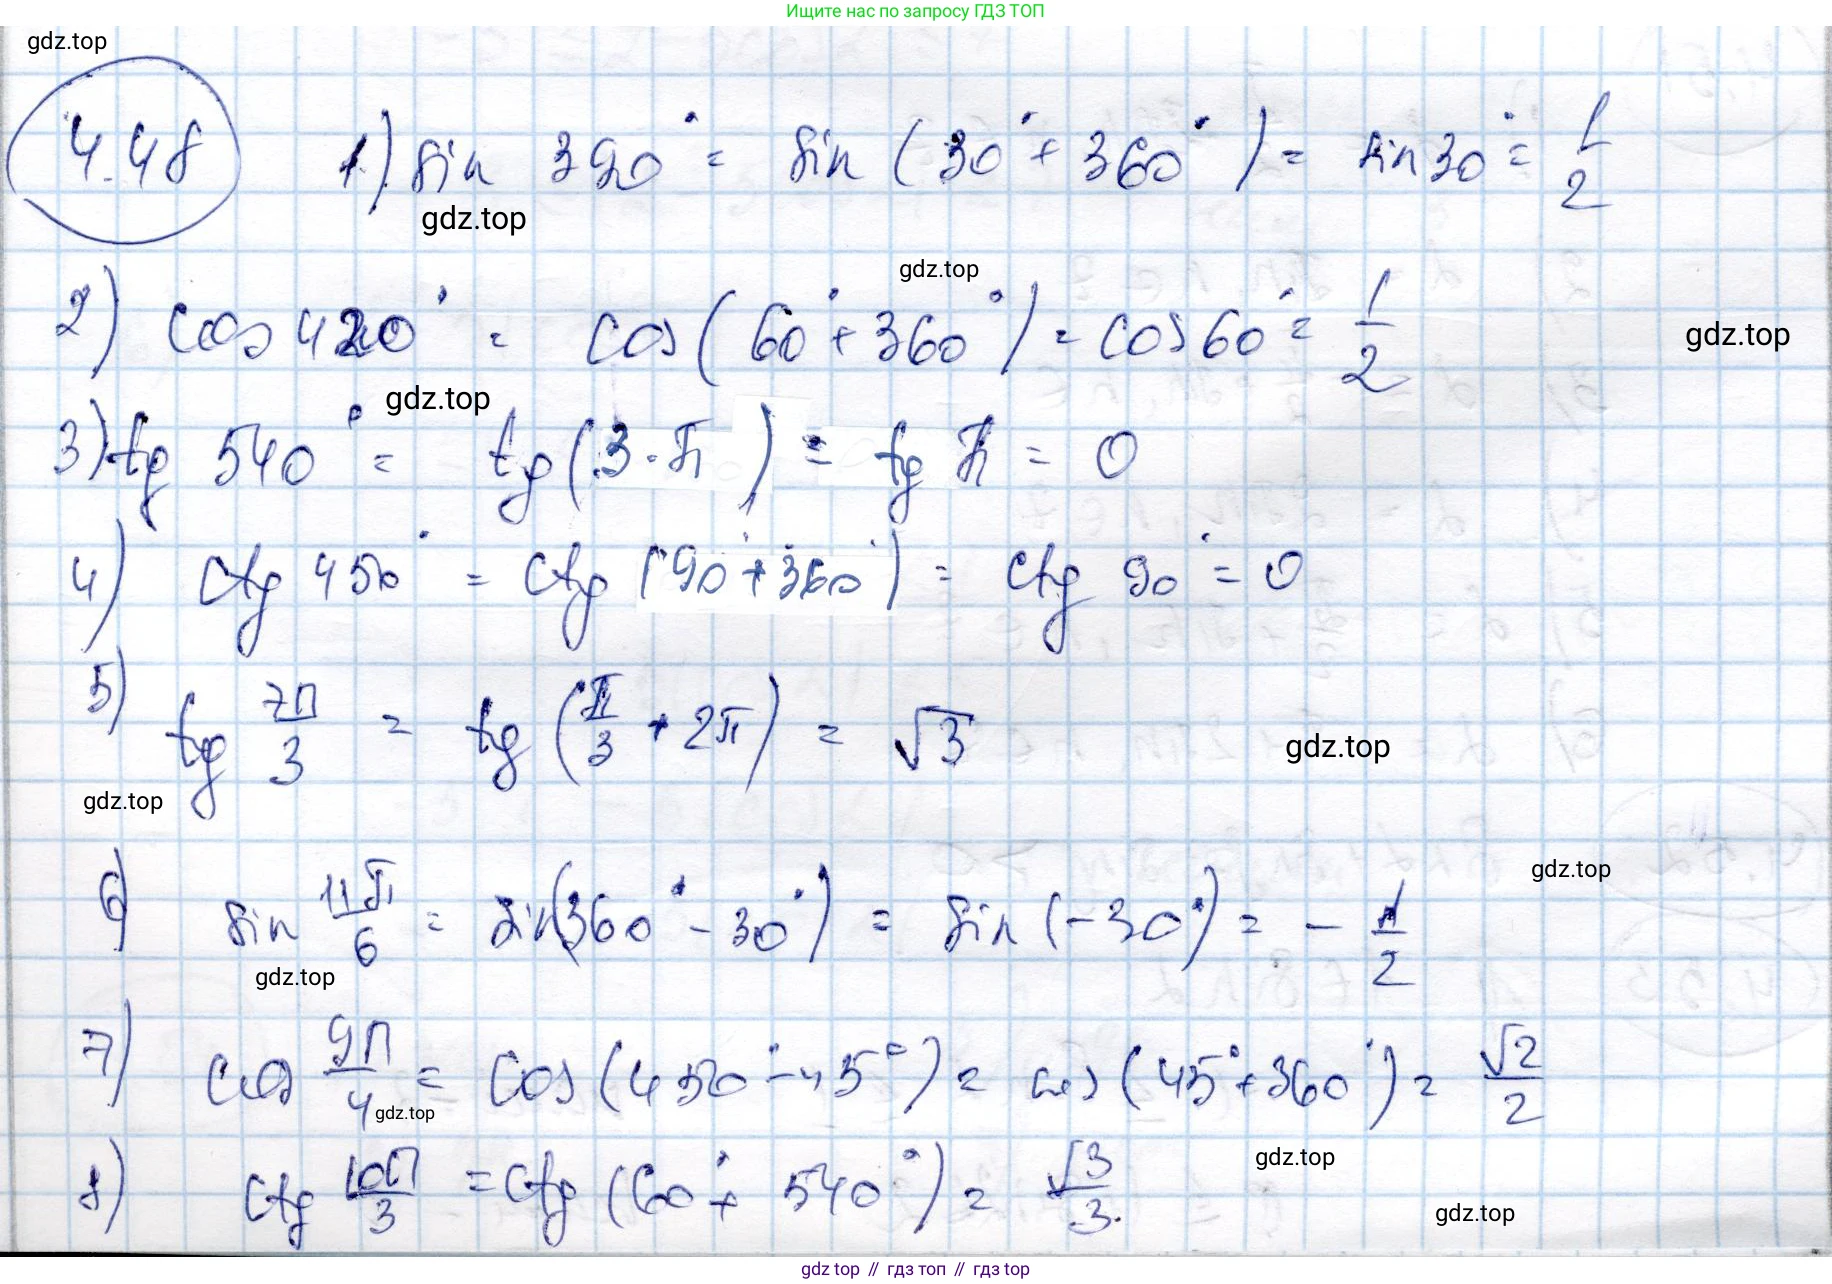 Ищите нас по запросу ГДЗ ТОП
gdz.top
4.48 1) sin 390° = sin (30° + 360°) = sin 30° = 1/2
gdz.top
gdz.top
2) cos 420° = cos (60° + 360°) = cos 60° = 1/2
gdz.top
gdz.top
3) tg 540° = tg (3·π) = tg π = 0
4) ctg 450° = ctg (90° + 360°) = ctg 90° = 0
5) tg 7π/3 = tg (π/3 + 2π) = √3
gdz.top
gdz.top
gdz.top
6) sin 11π/6 = sin (360° - 30°) = sin (-30°) = - 1/2
gdz.top
7) cos 9π/4 = cos (450° - 45°) = cos (45° + 360°) = √2/2
gdz.top
gdz.top
8) ctg 10π/3 = ctg (60° + 540°) = √3/3
gdz.top
gdz top // гдз топ // гдз top